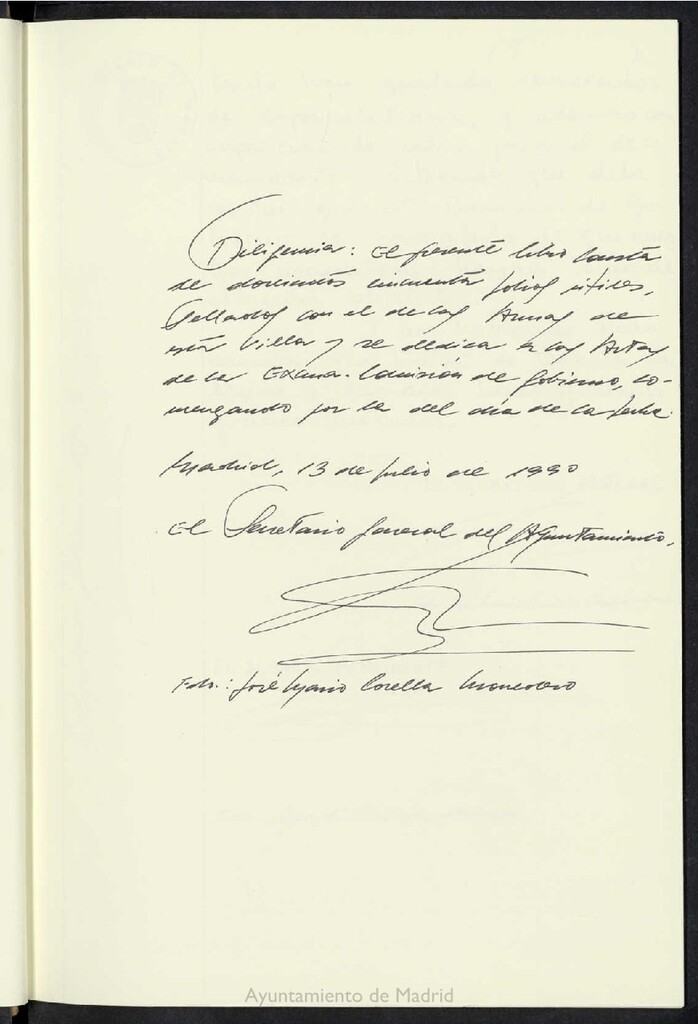 Diligencia: El presente libro consta
de doscientos cincuenta folios útiles,
sellados con el de las Armas de
esta Villa y se dedica a las Actas
de la Excma. Comisión de Gobierno, co-
menzando por la del día de la fecha.
Madrid, 13 de julio de 1990
El Secretario General del Ayuntamiento,
Fdo.: José Mario Corella Monedero
Ayuntamiento de Madrid